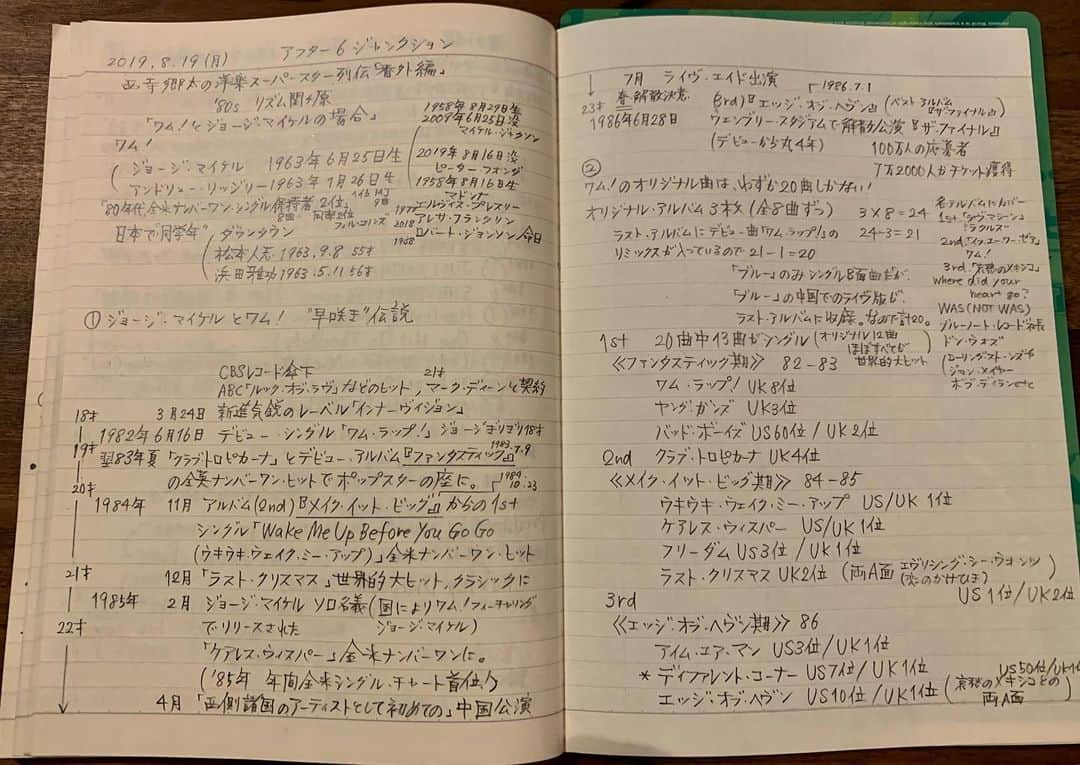 2019.8.19(月) アフター6ジャンクション
西寺郷太の洋楽スーパースター列伝『番外編』
'80s リズム関ヶ原
「ワム!とジョージ・マイケルの場合」
1958年8月29日生
2009年6月25日没
マイケル・ジャクソン
ワム!
ジョージ・マイケル 1963年6月25日生
アンドリュー・リッジリー 1963年1月26日生
2019年8月16日没
ピーター・フォンダ
1958年8月16日生
マドンナ
'80年代全米ナンバーワン・シングル保持者2位
8曲 同率2位
フィル・コリンズ
MJ
9曲
1977 エルヴィス・プレスリー
2018 アレサ・フランクリン
1938 ロバート・ジョンソン 命日
日本で"同学年" ダウンタウン
松本人志 1963.9.8 55才
浜田雅功 1963.5.11 56才
① ジョージ・マイケルとワム! "早咲き"伝説
CBSレコード傘下 21才
ABC「ルック・オブ・ラヴ」などのヒット,マーク・ディーンと契約
18才 3月24日 新進気鋭のレーベル「インナーヴィジョン」
1982年6月16日 デビュー・シングル「ワム・ラップ!」 ジョージギリギリ18才
19才 翌83年夏 「クラブトロピカーナ」とデビュー・アルバム『ファンタスティック』 1983.7.9
の全英ナンバーワン・ヒットでポップスターの座に。
20才 1984.10.23
1984年 11月 アルバム(2nd)『メイク・イット・ビッグ』からの1st
シングル「Wake Me Up Before You Go Go
(ウキウキ・ウェイク・ミー・アップ)」全米ナンバーワン・ヒット
21才 12月 「ラスト・クリスマス」世界的大ヒット,クラシックに
1985年 2月 ジョージ・マイケル ソロ名義(国によりワム!フィーチャリング
22才 でリリースされた ジョージ・マイケル)
「ケアレス・ウィスパー」全米ナンバーワンに。
('85年 年間全米シングル・チャート首位)
4月 「西側諸国のアーティストとして初めての」中国公演
7月 ライヴ・エイド出演
1986.7.1
23才 春・解散決意 (3rd)『エッジ・オブ・ヘヴン』(ベスト アルバム『ザ・ファイナル』)
1986年6月28日 ウェンブリー・スタジアムで解散公演『ザ・ファイナル』
(デビューから丸4年) 100万人の応募者
7万2000人がチケット獲得
②
ワム!のオリジナル曲は、わずか20曲しかない!
オリジナル・アルバム3枚(全8曲ずつ) 3×8=24
ラスト・アルバムにデビュー曲「ワム・ラップ!」の 24-3=21
リミックスが入っているので 21-1=20
「ブルー」のみシングルB面曲だが、
「ブルー」の中国でのライヴ版が、
ラスト・アルバムに収録。なので計20。
各アルバムにカバー
1st.「ラヴマシーン」
ミラクルズ
2nd.「イフ・ユー・ワー・ゼア」
3rd.「哀愁のメキシコ」
where did your
heart go?
WAS (NOT WAS)
ブルーノート・レコード社長
ドン・ウォズ
ローリングストーンズや
ジョン・メイヤー
ボブ・ディランetc
1st 20曲中13曲がシングル(オリジナル12曲
ほぼすべてが
世界的大ヒット
≪ファンタスティック期≫ 82-83
ワム・ラップ! UK8位
ヤング・ガンズ UK3位
バッド・ボーイズ US60位/UK2位
2nd クラブ・トロピカーナ UK4位
≪メイク・イット・ビッグ期≫ 84-85
ウキウキ・ウェイク・ミー・アップ US/UK 1位
ケアレス・ウィスパー US/UK1位
フリーダム US3位/UK1位
ラスト・クリスマス UK2位 (両A面 エヴリシング・シー・ウォンツ
(恋のかけひき)
US1位/UK2位
3rd
≪エッジ・オブ・ヘヴン期≫ 86
アイム・ユア・マン US3位/UK1位
*ディファレント・コーナー US7位/UK1位
エッジ・オブ・ヘヴン US10位/UK1位 (哀愁のメキシコとの
両A面
US50位/UK1位